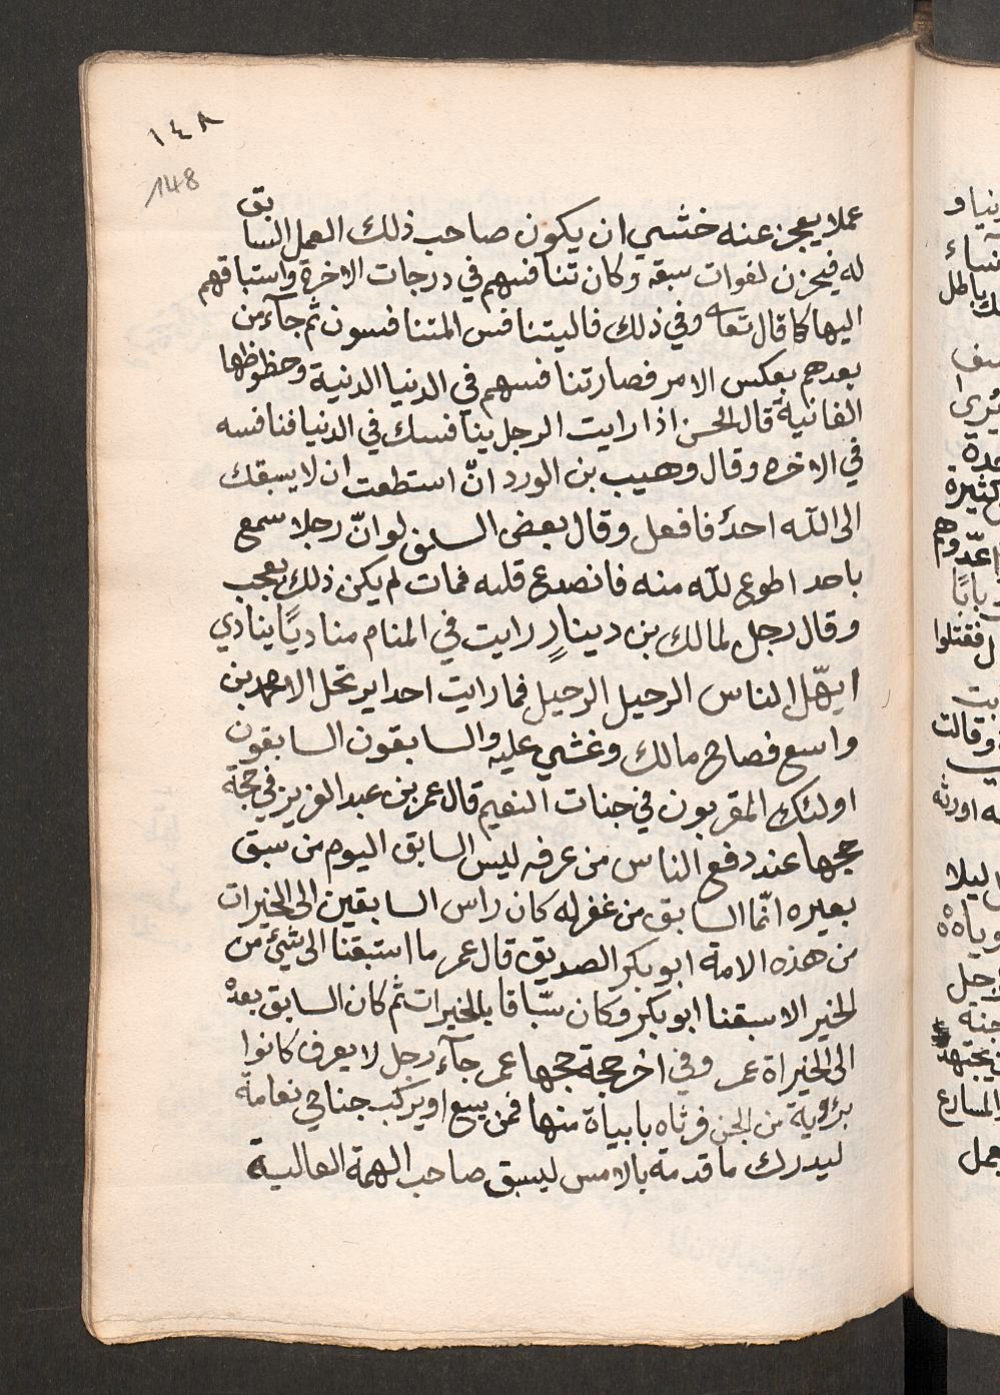 ١٤٨
148
عملا يعجز عنه خشي ان يكون صاحب ذلك العمل السابق
له فيحزن لفوات سبقه وكان تنافسهم في درجات الاخرة واستباقهم
اليها كما قال تعا وفي ذلك فاليتنافس المتنافسون ثم جآء من
بعدهم بعكس الامر فصار تنافسهم في الدنيا الدنية وحظوظها
الفانية قال الحسن اذا رايت الرجل ينافسك في الدنيا فنافسه
في الاخره وقال وهيب بن الورد انّ استطعت ان لا يسبقك
الى الله احدٌ فافعل وقال بعض السلف لو انّ رجلا سمع
باحد اطوع لله منه فانصدع قلبه فمات لم يكن ذلك بعجب
وقال رجل لمالك بن دينارٍ رايت في المنام مناديًا ينادي
ايهّا الناس الرحيل الرحيل فما رايت احدا يرتحل الا محمد بن
واسع فصاح مالك وغشي عليه والسابقون السابقون
اولئك المقربون في جنات النعيم قال عمر بن عبد العزيز في حجة
حجها عند دفع الناس من عرفه ليس السابق اليوم من سبق
بعيره انّما السابق من غفر له كان راس السابقين الى الخيرات
من هذه الامة ابو بكر الصديق قال عمر ما استبقنا الى شئ من
الخير الا سبقنا ابو بكر وكان سبّاقا بالخيرات ثم كان السابق بعده
الى الخيراة عمر وفي اخر حجة حجها عمر جآء رجل لا يعرف كانوا
يرٔوية من الجن فرثاه بابياة منها فمن يسع او يركب جناحي نعامة
ليدرك ما قدمة بالامس ليسبق صاحب الهمة العالية